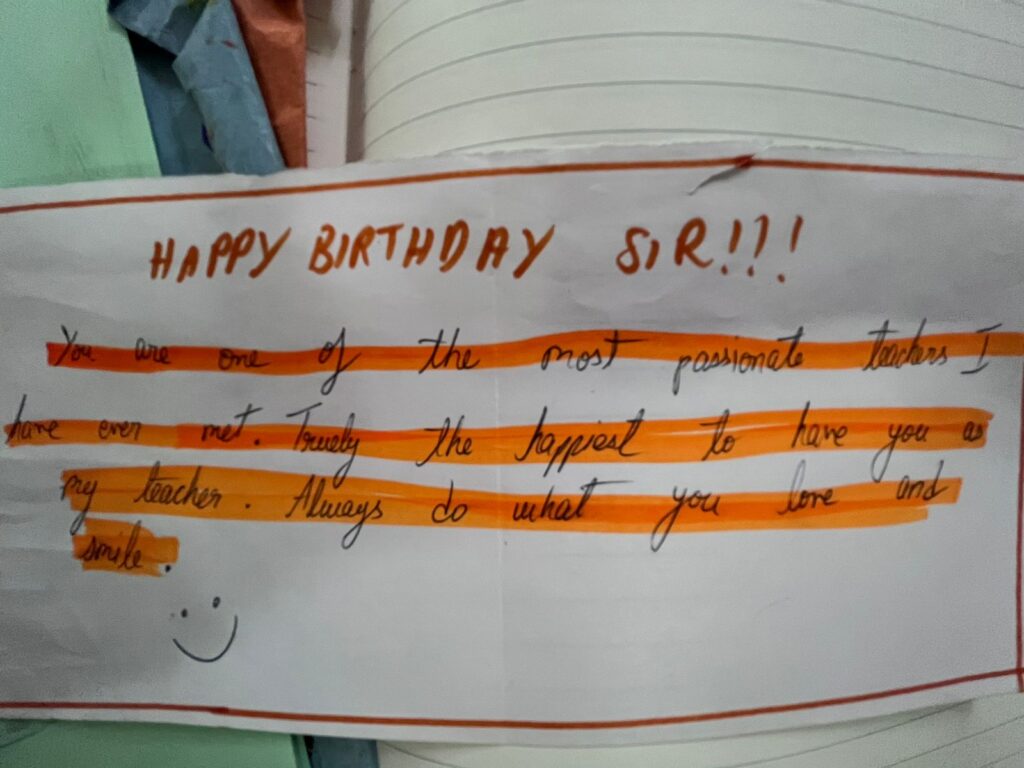 HAPPY BIRTHDAY SIR!!!
You are one of the most passionate teachers I
have ever met. Truely the happiest to have you as
my teacher. Always do what you love and
smile.